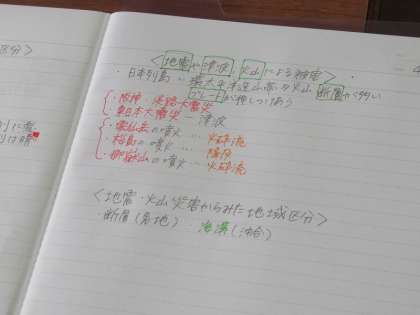 区分>
<地震や津波、火山による被害>
・日本列島…環太平洋造山帯の火山 断層が多い
プレートが押しつけあう
・阪神・淡路大震災
東日本大震災 — 津波
・雲仙岳の噴火 … 火砕流
・桜島の噴火 …
の噴火 … 火砕流
<地震・火山災害からみた地域区分>
・断層(各地) 海溝(沖合)